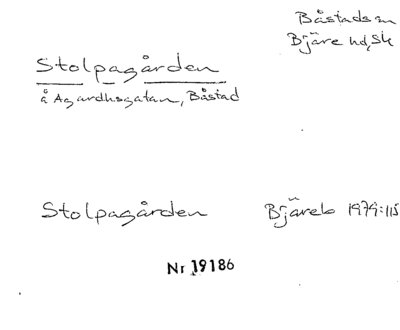 Båstads sn
Bjäre hd, Sk
Stolpagården
å Agardhsgatan, Båstad
Stolpagården Bjäreb 1979:115
Nr 19186